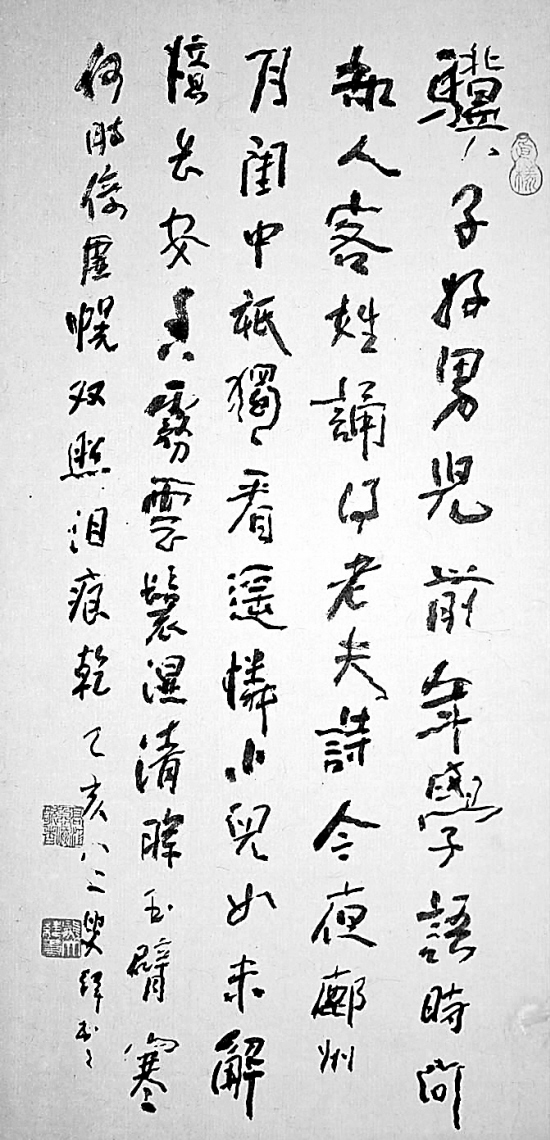 驥子好男兒前年學子語時問
知人客姓誦得老夫詩今夜鄜州
月閨中祇獨看遙憐小兒女未解
憶長安香霧雲鬟濕清暉玉臂寒
何時倚虛幌双照泪痕乾乙亥八二叟書